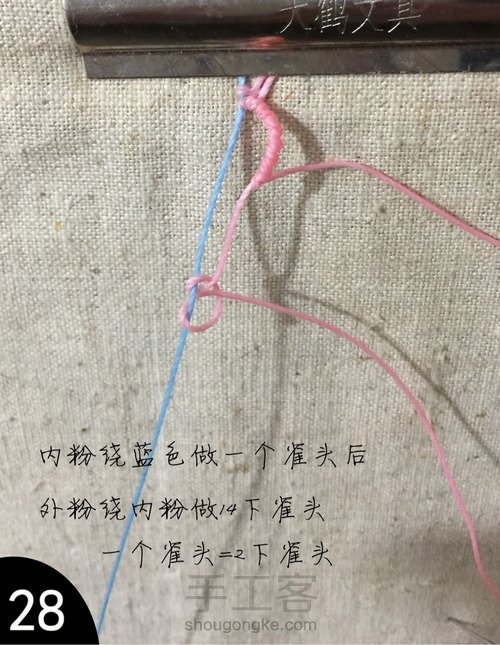 天鹤文具
内粉绕蓝色做一个雀头后
外粉绕内粉做14下雀头
一个雀头=2下雀头
28
手工客
shougongke.com